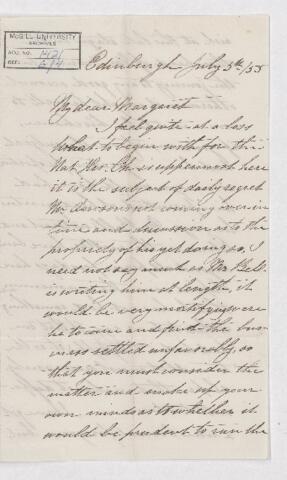 McGILL UNIVERSITY
ARCHIVES
ACC. NO. 1421
REF. 6/4
Edinburgh July 5th/55
My dear Margaret
I feel quite at a loss
what to begin with for the
Nat. His. Ch. is uppermost here
it is the subject of daily regret
Mr Dawson not coming over in
time and discussion as to the
propriety of his yet doing so, I
need not say much as Mr Bell
is writing him at length, it
would be very mortifying were
he to come and find the bus-
iness settled unfavorably, so
that you must consider the
matter and make up your
own minds as to whether it
would be prudent to run the